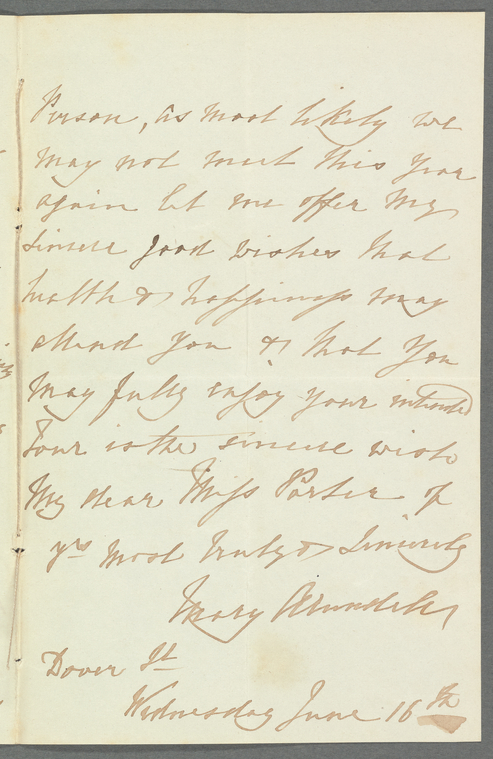 Person, as most likely we
may not meet this year
again let me offer my
sincere good wishes that
health & happiness may
attend you & that you
may fully enjoy your intended
Tour is the sincere wish
My dear Miss Porter of
yrs most truly & Sincerely
Mary Arundell
Dover St
Wednesday June 16th